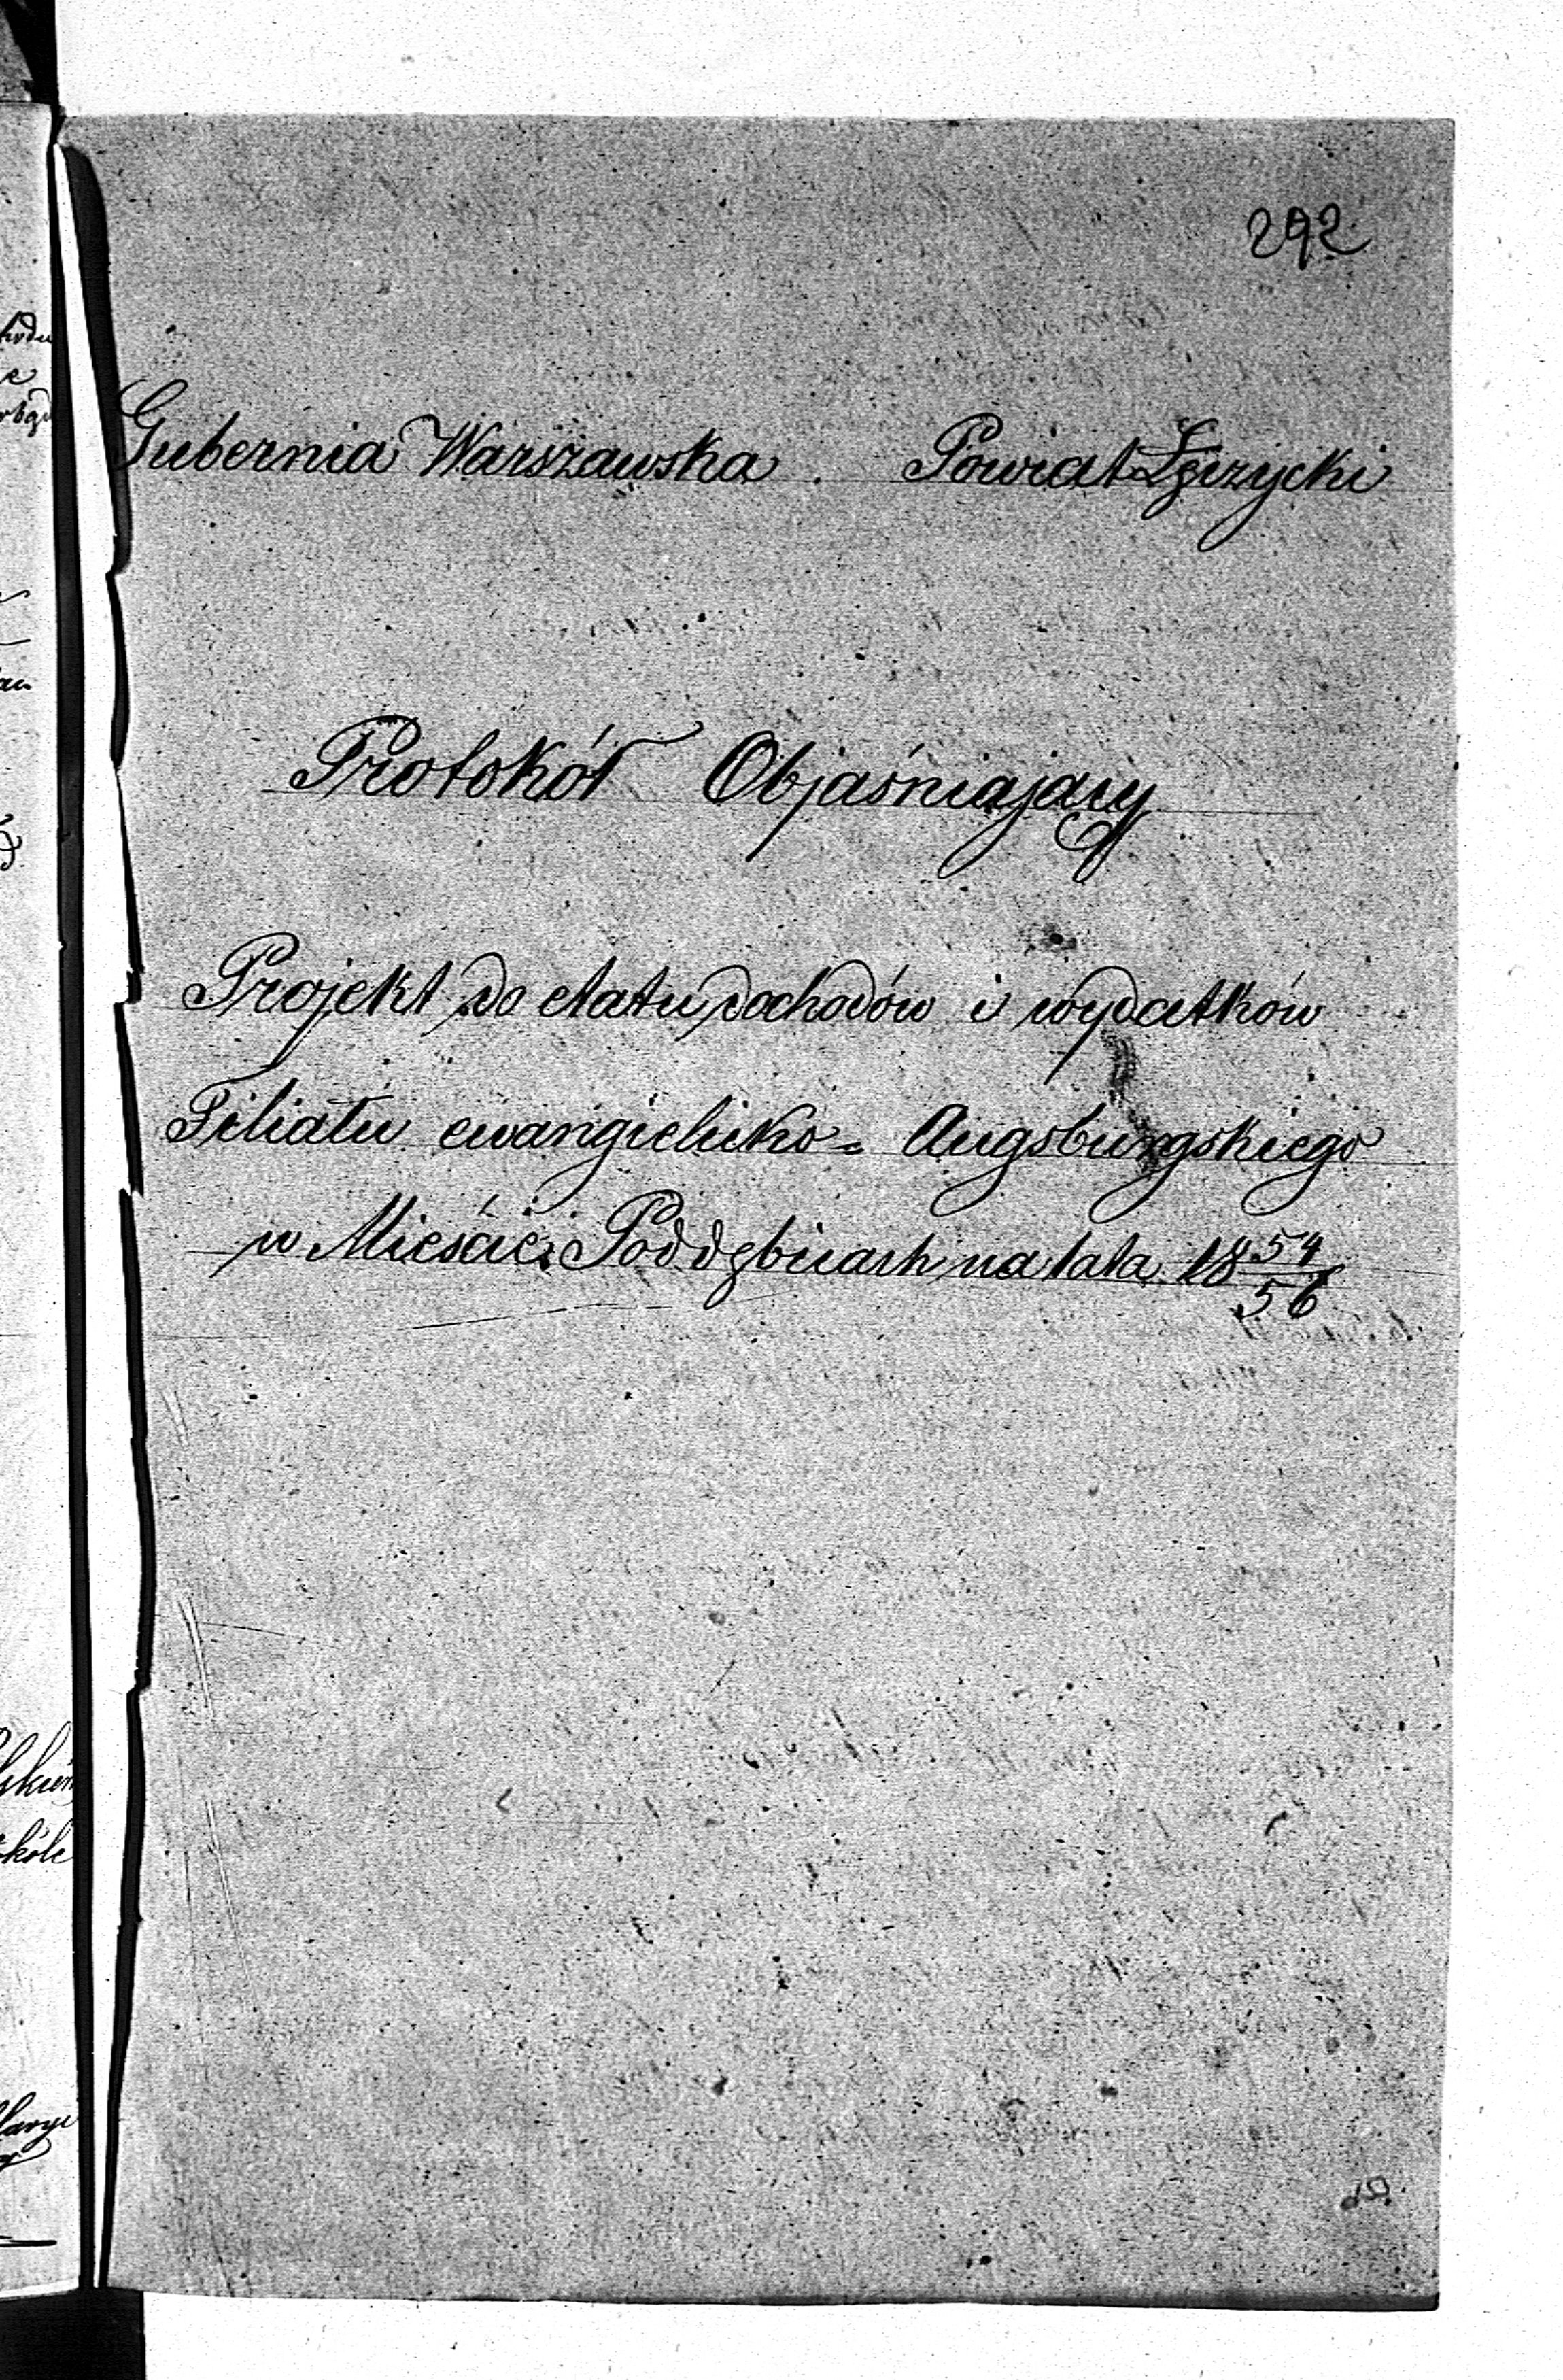 292
Gubernia Warszawska. Powiat Łęczycki
Protokół Objaśniający
Projekt do etatu dochodów i wydatków
Filiału ewangielicko= Augsburgskiego
w Mieście Poddębicach na lata 18 54/56